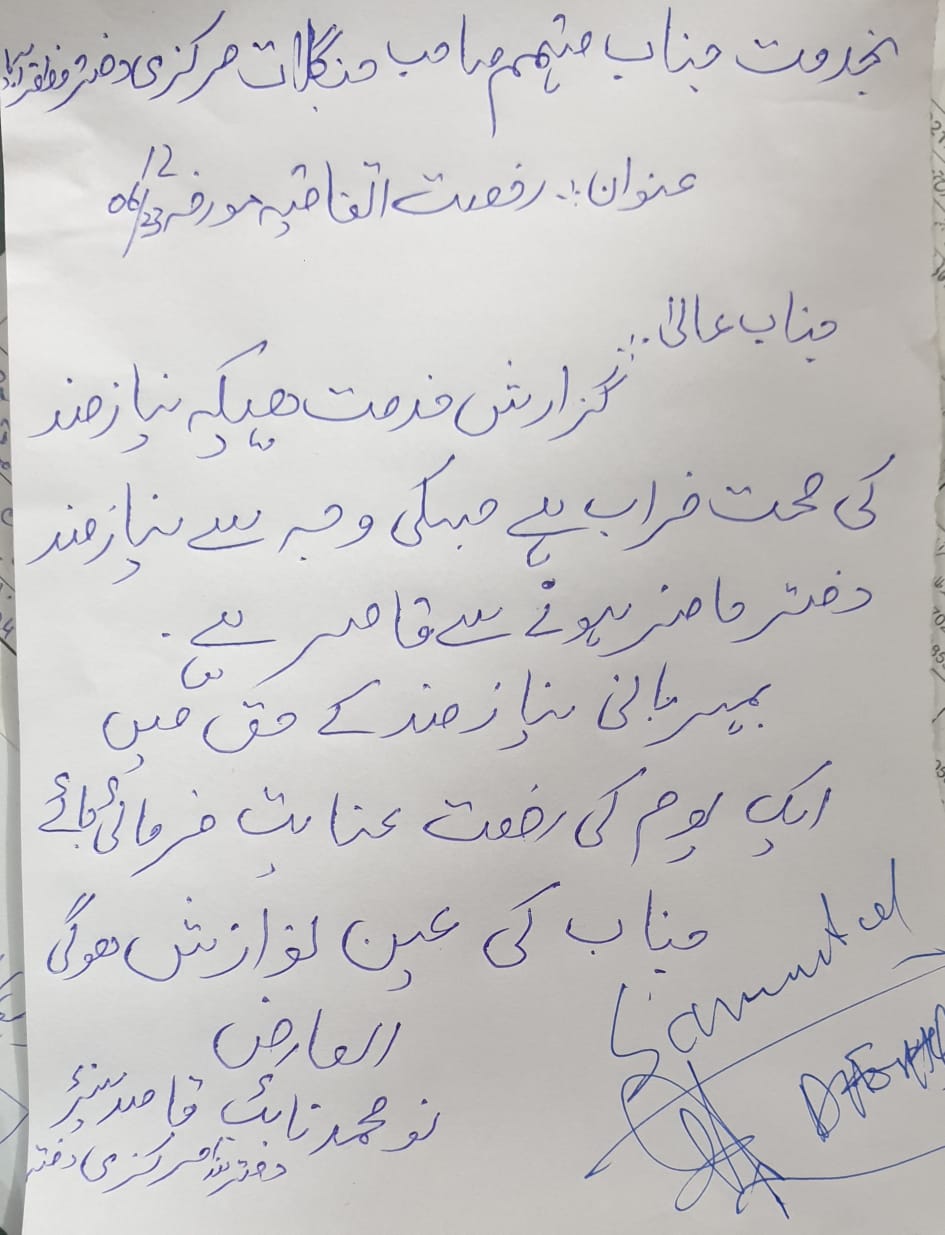 بخدمت جناب مہتمم صاحب جنگلات مرکزی دفتر مظفرآباد
عنوان:۔ رخصت اتفاقیہ مورخہ 12/06/23
جناب عالیٰ:۔
گزارش خدمت ھیکہ نیازمند
کی صحت خراب ہے جسکی وجہ سے نیازمند
دفتر حاضر ہونے سے قاصر ہے۔
بمہربانی نیازمند کے حق میں
ایک یوم کی رخصت عنایت فرمائی جائے
جناب کی عین نوازش ھوگی
العارض
نو محمد نائب قاصد
دفتر ہذا مرکزی دفتر